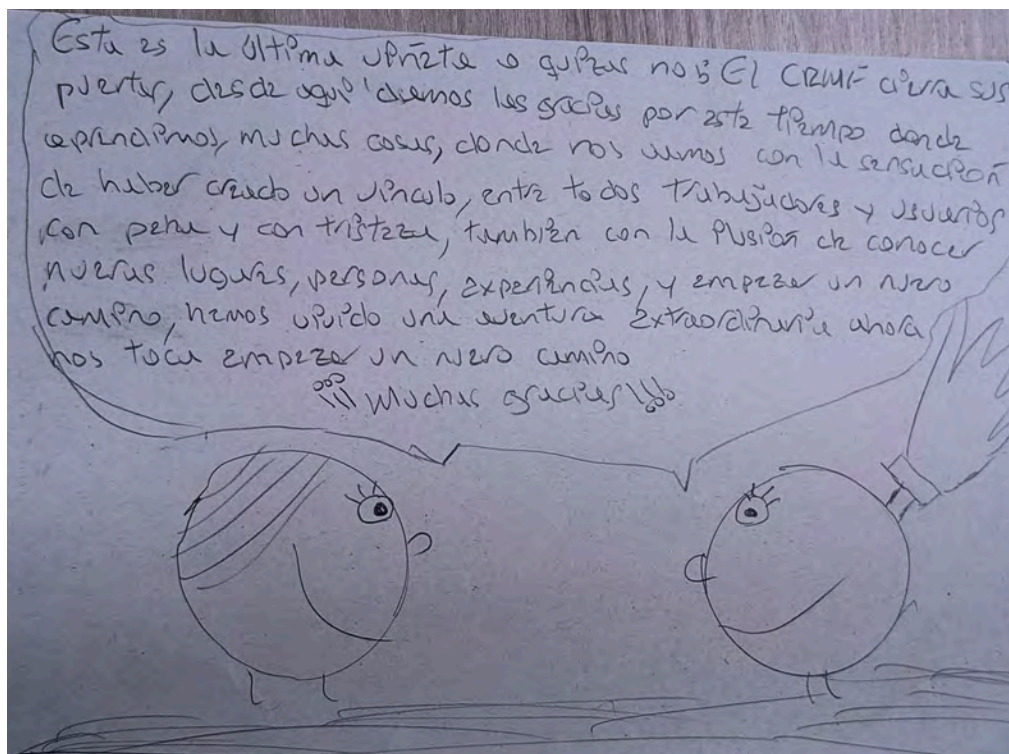 Esta es la última viñeta o quizas no; El CRMF cierra sus
puertas, desde aqui damos las gracias por este tiempo donde
aprendimos, muchas cosas, donde nos vamos con la sensación
de haber creado un vinculo, entre todos trabajadores y usuarios
con pena y con tristeza, también con la ilusión de conocer
nuevas lugares, personas, experiencias, y empezar un nuevo
camino, hemos vivido una aventura extraordinaria ahora
nos toca empezar un nuevo camino
¡¡¡ Muchas gracias !!!